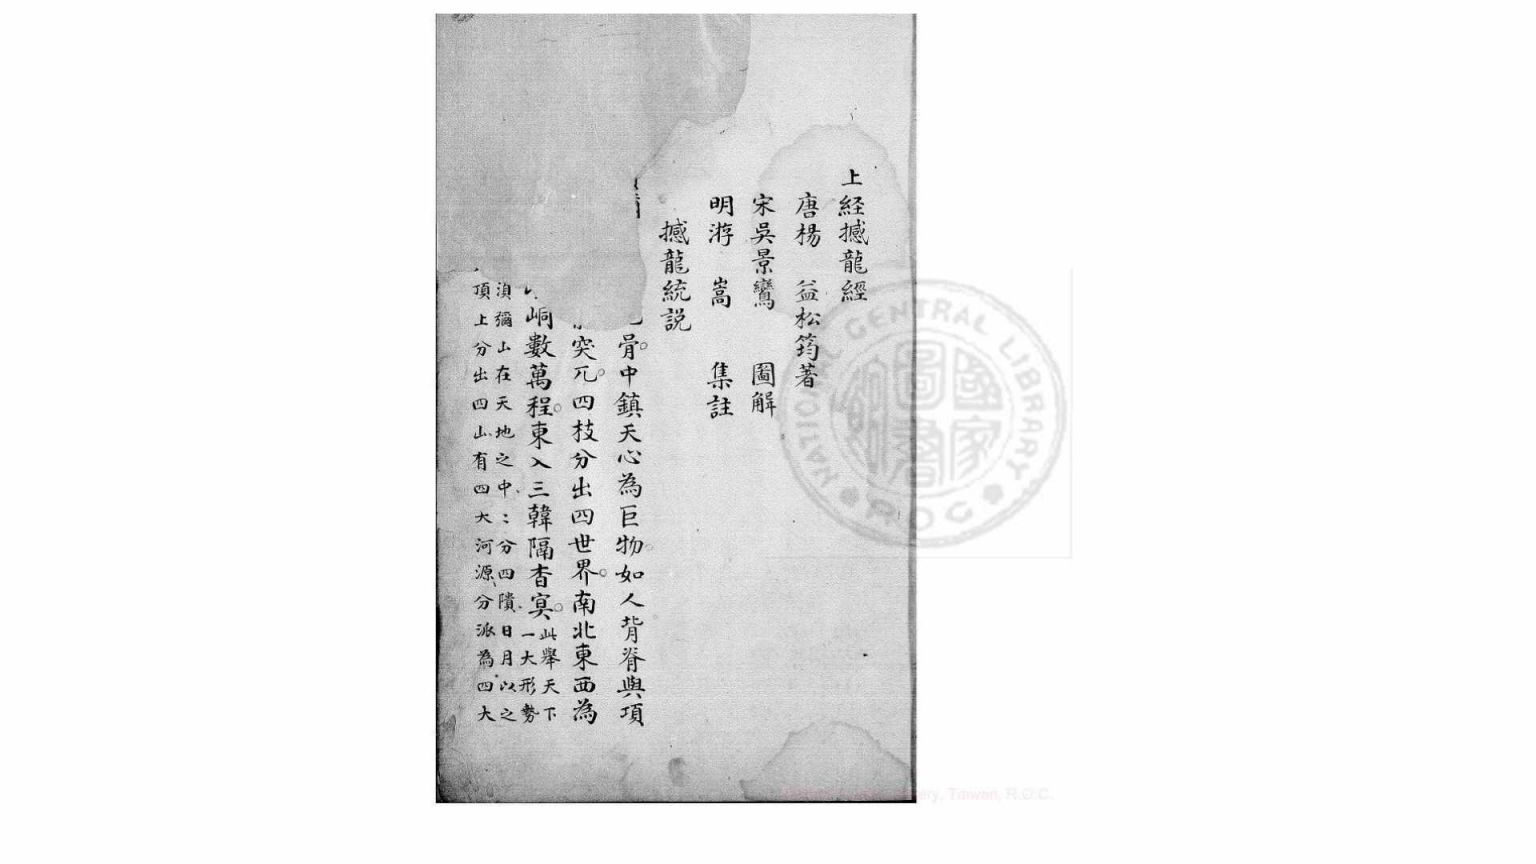 上経撼龍經
唐楊 益松筠著
宋吳景鸞 圖解
明游 嵩 集註
撼龍統説
骨中鎮天心為巨物如人背脊與項
突兀四枝分出四世界南北東西為
峒數萬程東入三韓隔杳冥此舉天下
一大形勢
湏彌山在天地之中：分四隤日月以之
頂上分出四山有四大河源分派為四大
NATIONAL CENTRAL LIBRARY
ROC
國家圖書館
Taiwan, R.O.C.